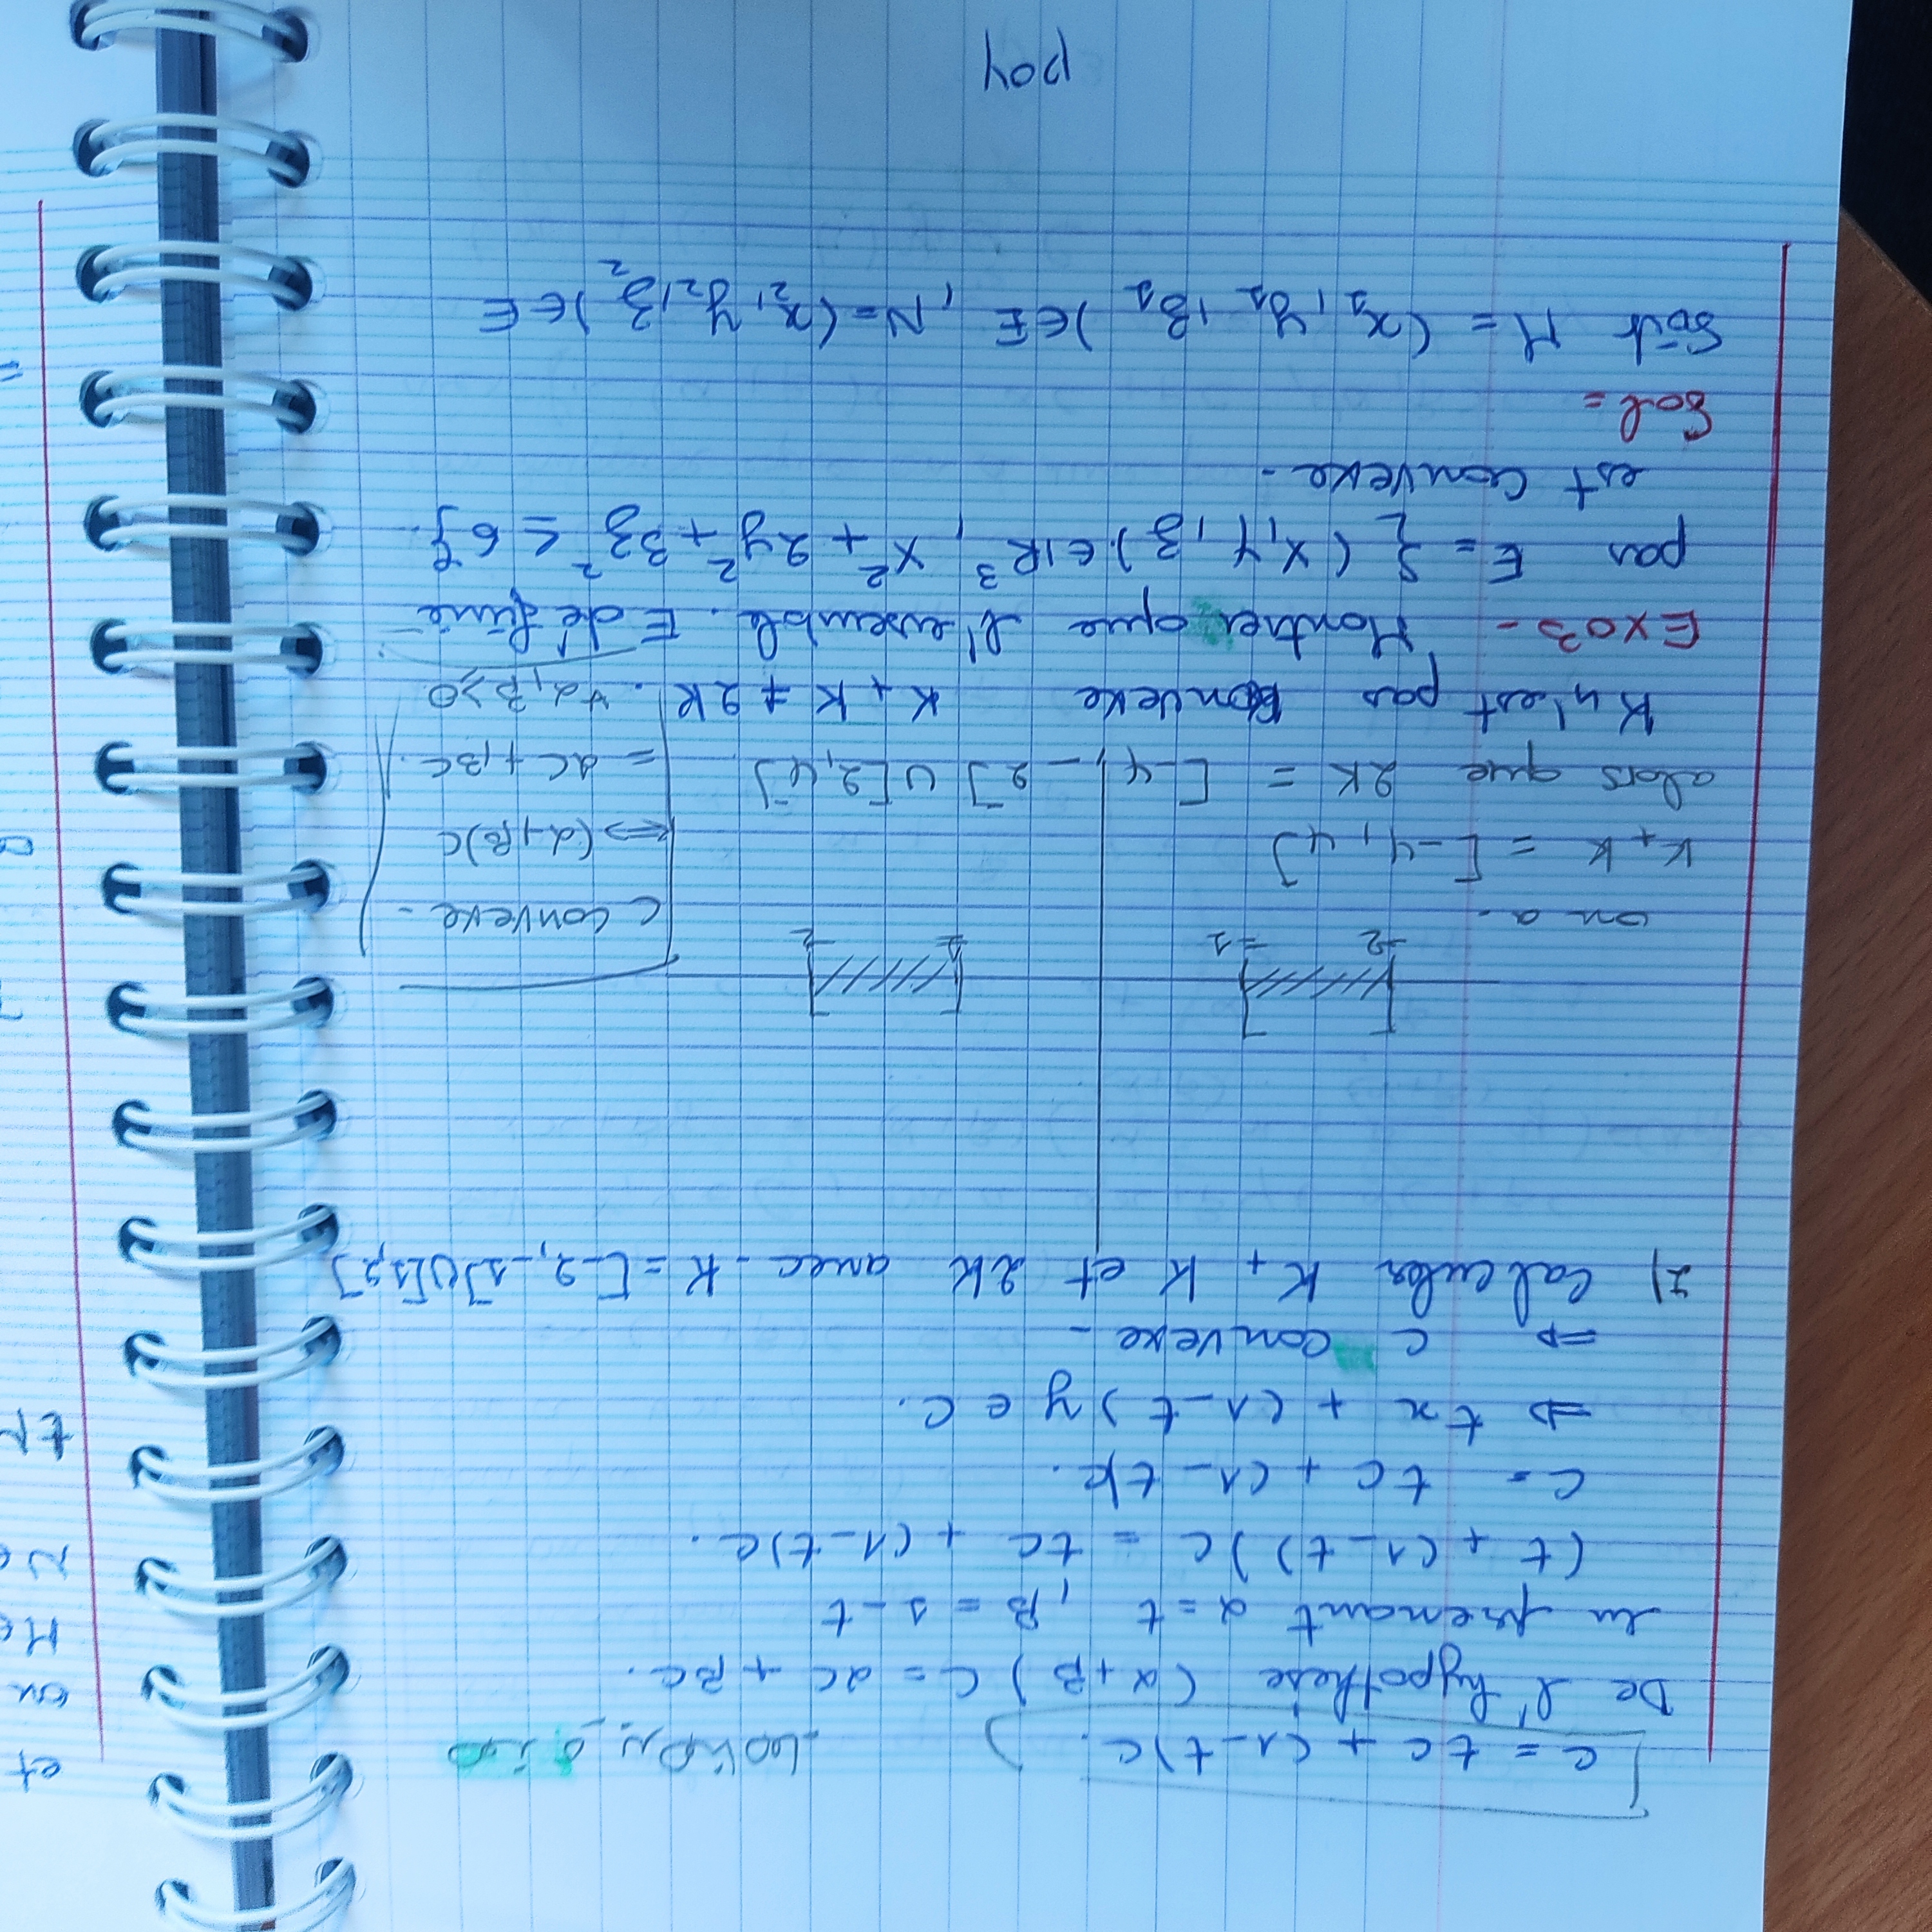 C = tC + (1-t)C.
De l'hypothèse (α+β) C = αC + βC.
en prenant α = t , β = 1-t
(t + (1-t))C = tC + (1-t)C.
C = tC + (1-t)C.
⇒ tx + (1-t) y ∈ C.
⇒ C convexe -
2) Calculer K + K et 2K avec K = [-2,-1]∪[1,2]
-2 -1 1 2
on a.
K+K = [-4, 4]
alors que 2K = [-4, -2] ∪ [2,4]
K n'est pas convexe K + K ≠ 2K.
C convexe -
⇔ (α+β)C
= αC + βC.
∀α, β ≥ 0
EXO3 - Montrer que l'ensemble. E définie
par E = { (x, y, z) ∈ ℝ³, x² + 2y² + 3z² ≤ 6}.
est convexe.
Sol =
Soit M = (x₁, y₁, z₁) ∈ E , N = (x₂, y₂, z₂) ∈ E
poy
et
on
tM